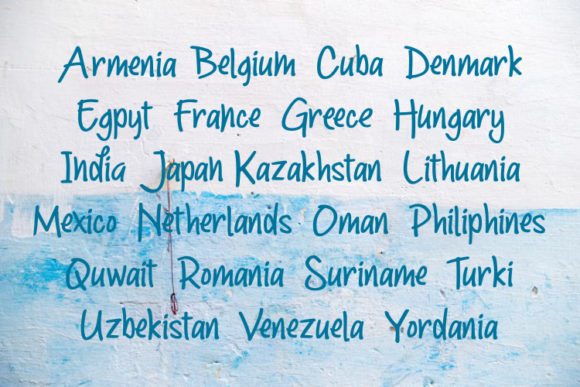 Armenia Belgium Cuba Denmark
Egpyt France Greece Hungary
India Japan Kazakhstan Lithuania
Mexico Netherlands Oman Philiphines
Quwait Romania Suriname Turki
Uzbekistan Venezuela Yordania